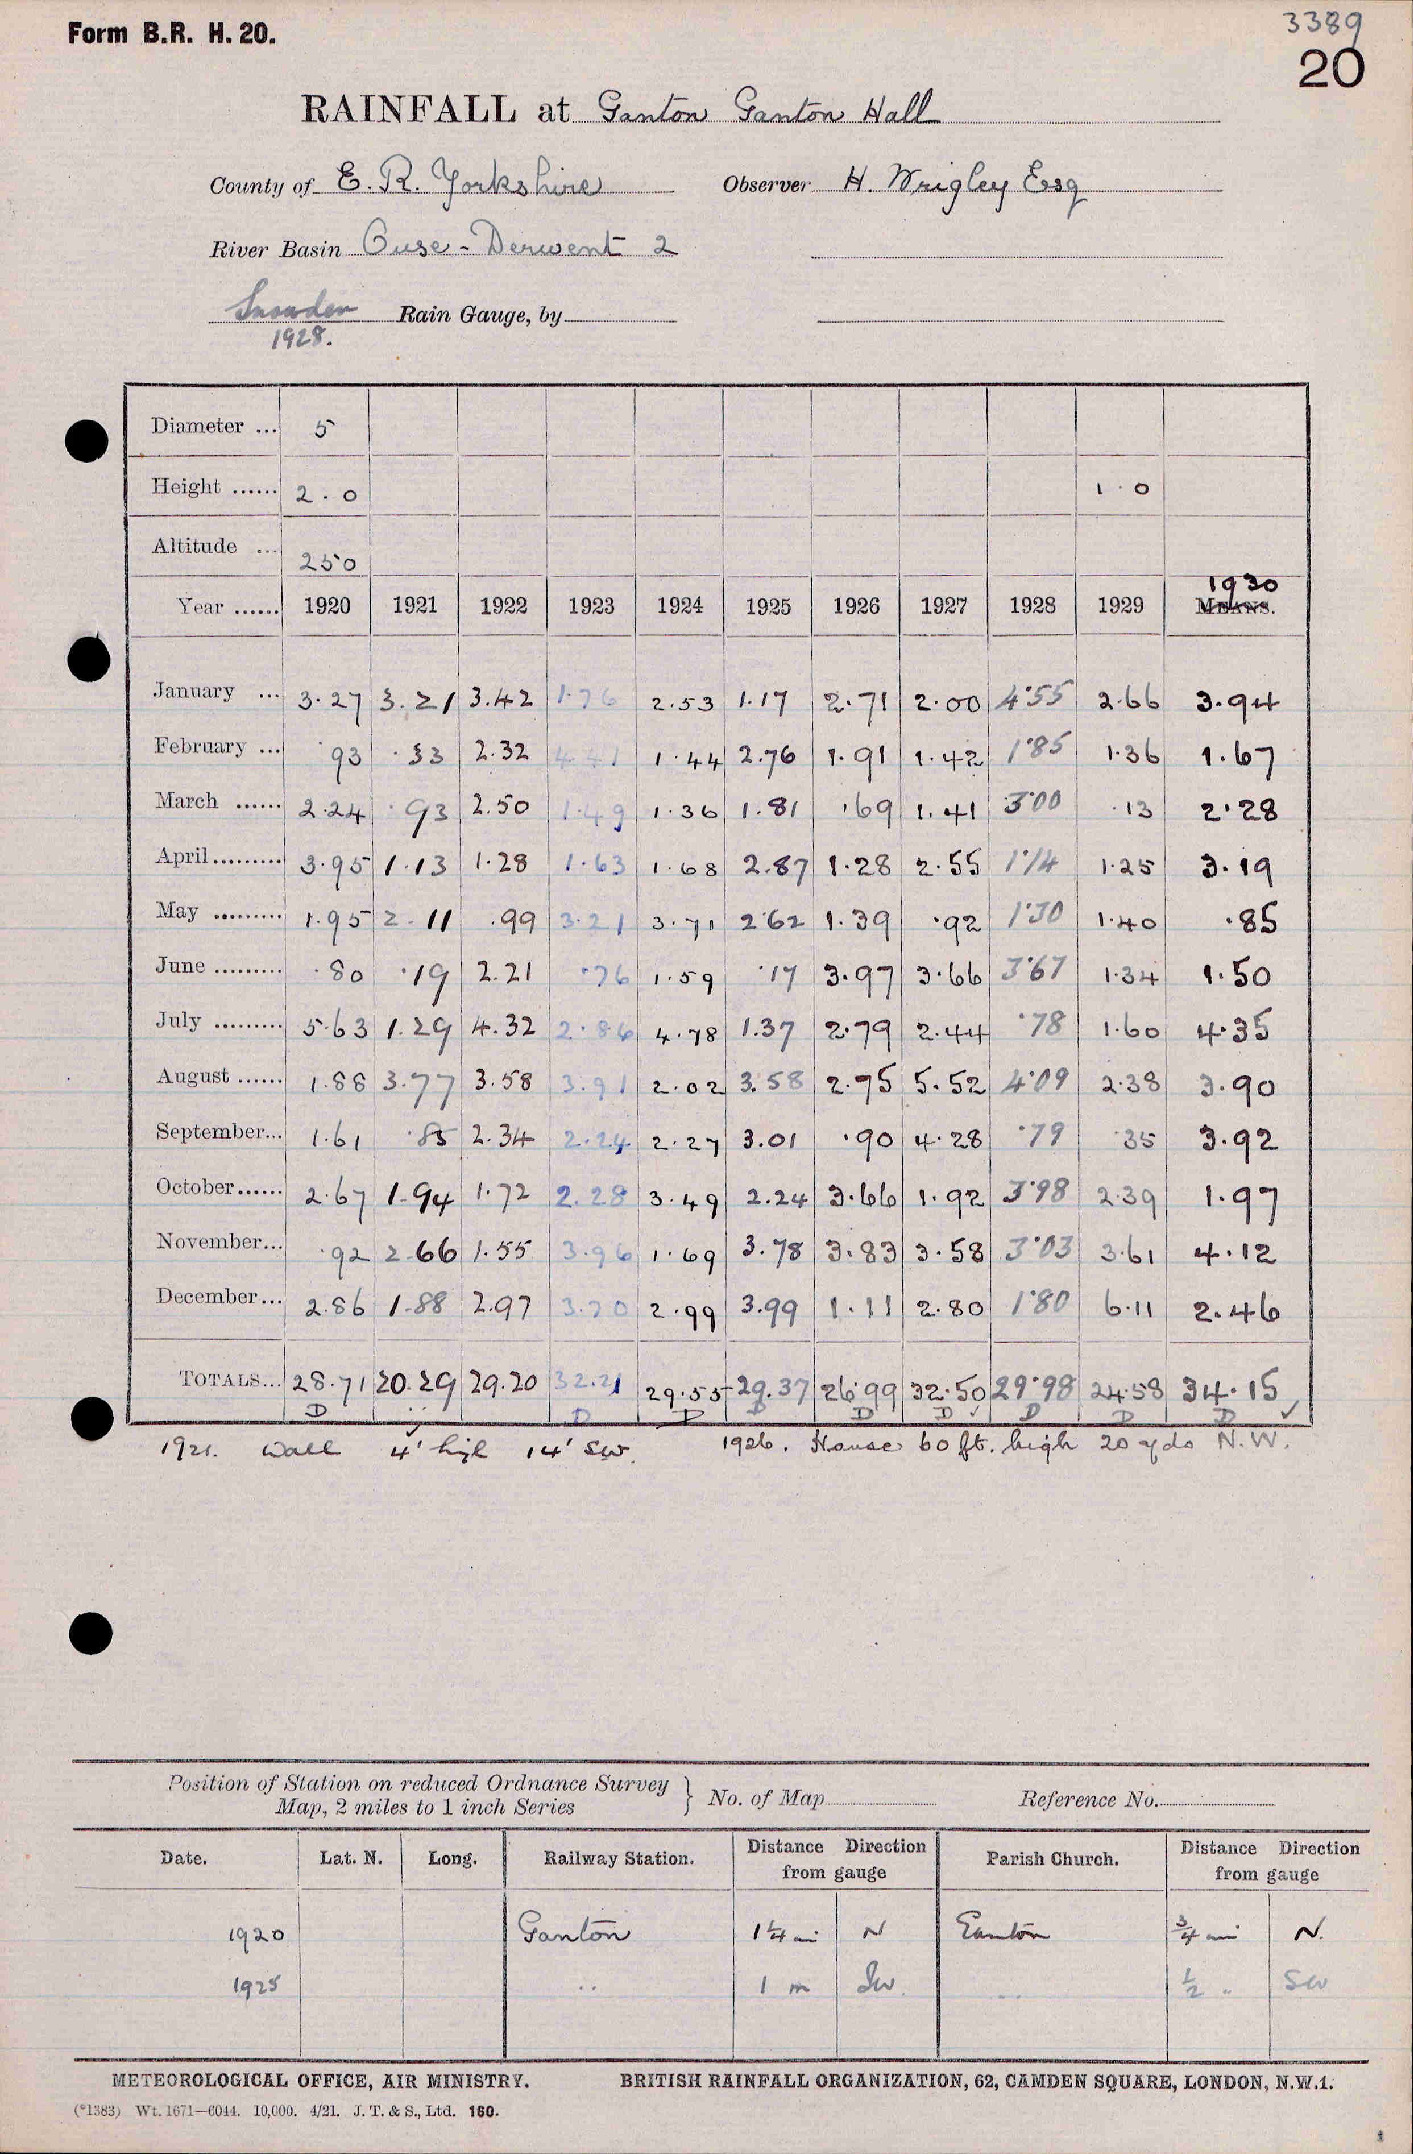 3389
Form B.R. H. 20.
20
RAINFALL at Ganton Ganton Hall
County of E. R. Yorkshire Observer H. Wrigley Esq
River Basin Ouse - Derwent 2
Snowdon Rain Gauge, by
1928.
Diameter ... 5
Height ...... 2.0 1.0
Altitude ... 250
1930
Year ...... 1920 1921 1922 1923 1924 1925 1926 1927 1928 1929 MEANS.
January ... 3.27 3.21 3.42 1.76 2.53 1.17 2.71 2.00 4.55 2.66 3.94
February ... .93 .33 2.32 4.41 1.44 2.76 1.91 1.42 1.85 1.36 1.67
March ...... 2.24 .93 2.50 1.49 1.36 1.81 .69 1.41 3.00 .13 2.28
April ......... 3.95 1.13 1.28 1.63 1.68 2.87 1.28 2.55 1.14 1.25 3.19
May ......... 1.95 2.11 .99 3.21 3.71 2.62 1.39 .92 1.30 1.40 .85
June ......... .80 .19 2.21 .76 1.59 .17 3.97 3.66 3.67 1.34 1.50
July ......... 5.63 1.29 4.32 2.86 4.78 1.37 2.79 2.44 .78 1.60 4.35
August ...... 1.88 3.77 3.58 3.91 2.02 3.58 2.75 5.52 4.09 2.38 3.90
September... 1.61 .85 2.34 2.24 2.27 3.01 .90 4.28 .79 .35 3.92
October...... 2.67 1.94 1.72 2.28 3.49 2.24 3.66 1.92 3.98 2.39 1.97
November... .92 2.66 1.55 3.96 1.69 3.78 3.83 3.58 3.03 3.61 4.12
December... 2.86 1.88 2.97 3.70 2.99 3.99 1.11 2.80 1.80 6.11 2.46
TOTALS... 28.71 20.29 29.20 32.21 29.55 29.37 26.99 32.50 29.98 24.58 34.15
D D D D D D ✓ D D D ✓
1921. Wall 4' high 14' SW. 1926. House 60 ft. high 20 yds N.W.
Position of Station on reduced Ordnance Survey
Map, 2 miles to 1 inch Series } No. of Map Reference No.
Date. Lat. N. Long. Railway Station. Distance Direction from gauge Parish Church. Distance Direction from gauge
1920 Ganton 1¼ mi N Ganton ¾ mi N.
1925 .. 1 m SW. .. ½ " SW
METEOROLOGICAL OFFICE, AIR MINISTRY. BRITISH RAINFALL ORGANIZATION, 62, CAMDEN SQUARE, LONDON, N.W.1.
(*1383) Wt. 1671—6044. 10,000. 4/21. J. T. & S., Ltd. 160.